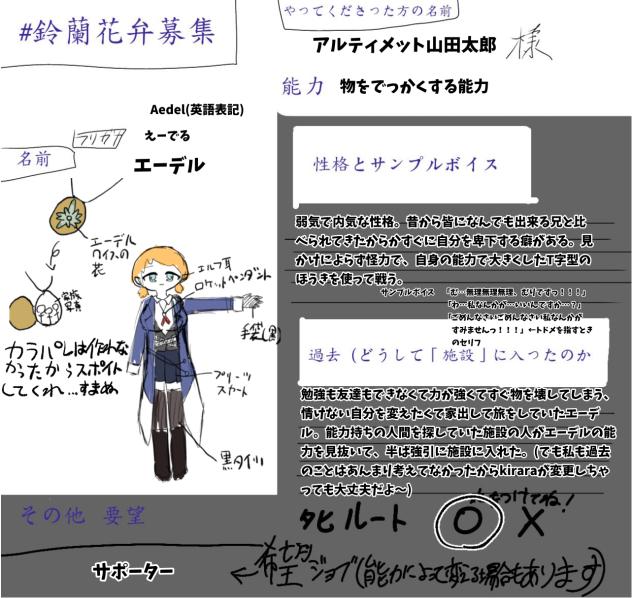 #鈴蘭花弁募集
やってくださった方の名前
アルティメット山田太郎 様
能力 物をでっかくする能力
Aedel(英語表記)
フリガナ えーでる
名前 エーデル
エーデル
ワイスの
花
家族
写真
エルフ耳
ロケットペンダント
手袋(黒)
プリーツ
スカート
黒タイツ
カラパレは作れな
かったからスポイト
してくれ…すまぬ
性格とサンプルボイス
弱気で内気な性格。昔から皆になんでも出来る兄と比
べられてきたからかすぐに自分を卑下する癖がある。見
かけによらず怪力で、自身の能力で大きくしたT字型の
ほうきを使って戦う。
サンプルボイス 「む…無理無理無理、むりですっ!!!」
「わ…私なんかが…いいんですか…?」
「ごめんなさいごめんなさい私なんかが
すみませんっ!!!」←トドメを指すとき
のセリフ
過去 (どうして「施設」に入ったのか
勉強も友達もできなくて力が強くてすぐ物を壊してしまう、
情けない自分を変えたくて家出して旅をしていたエーデ
ル。能力持ちの人間を探していた施設の人がエーデルの能
力を見抜いて、半ば強引に施設に入れた。(でも私も過去
のことはあんまり考えてなかったからkiraraが変更しちゃ
っても大丈夫だよ〜)
つけてね!
タヒ ルート O X
その他 要望
サポーター
←希望ジョブ(能力によって変える場合もあります)